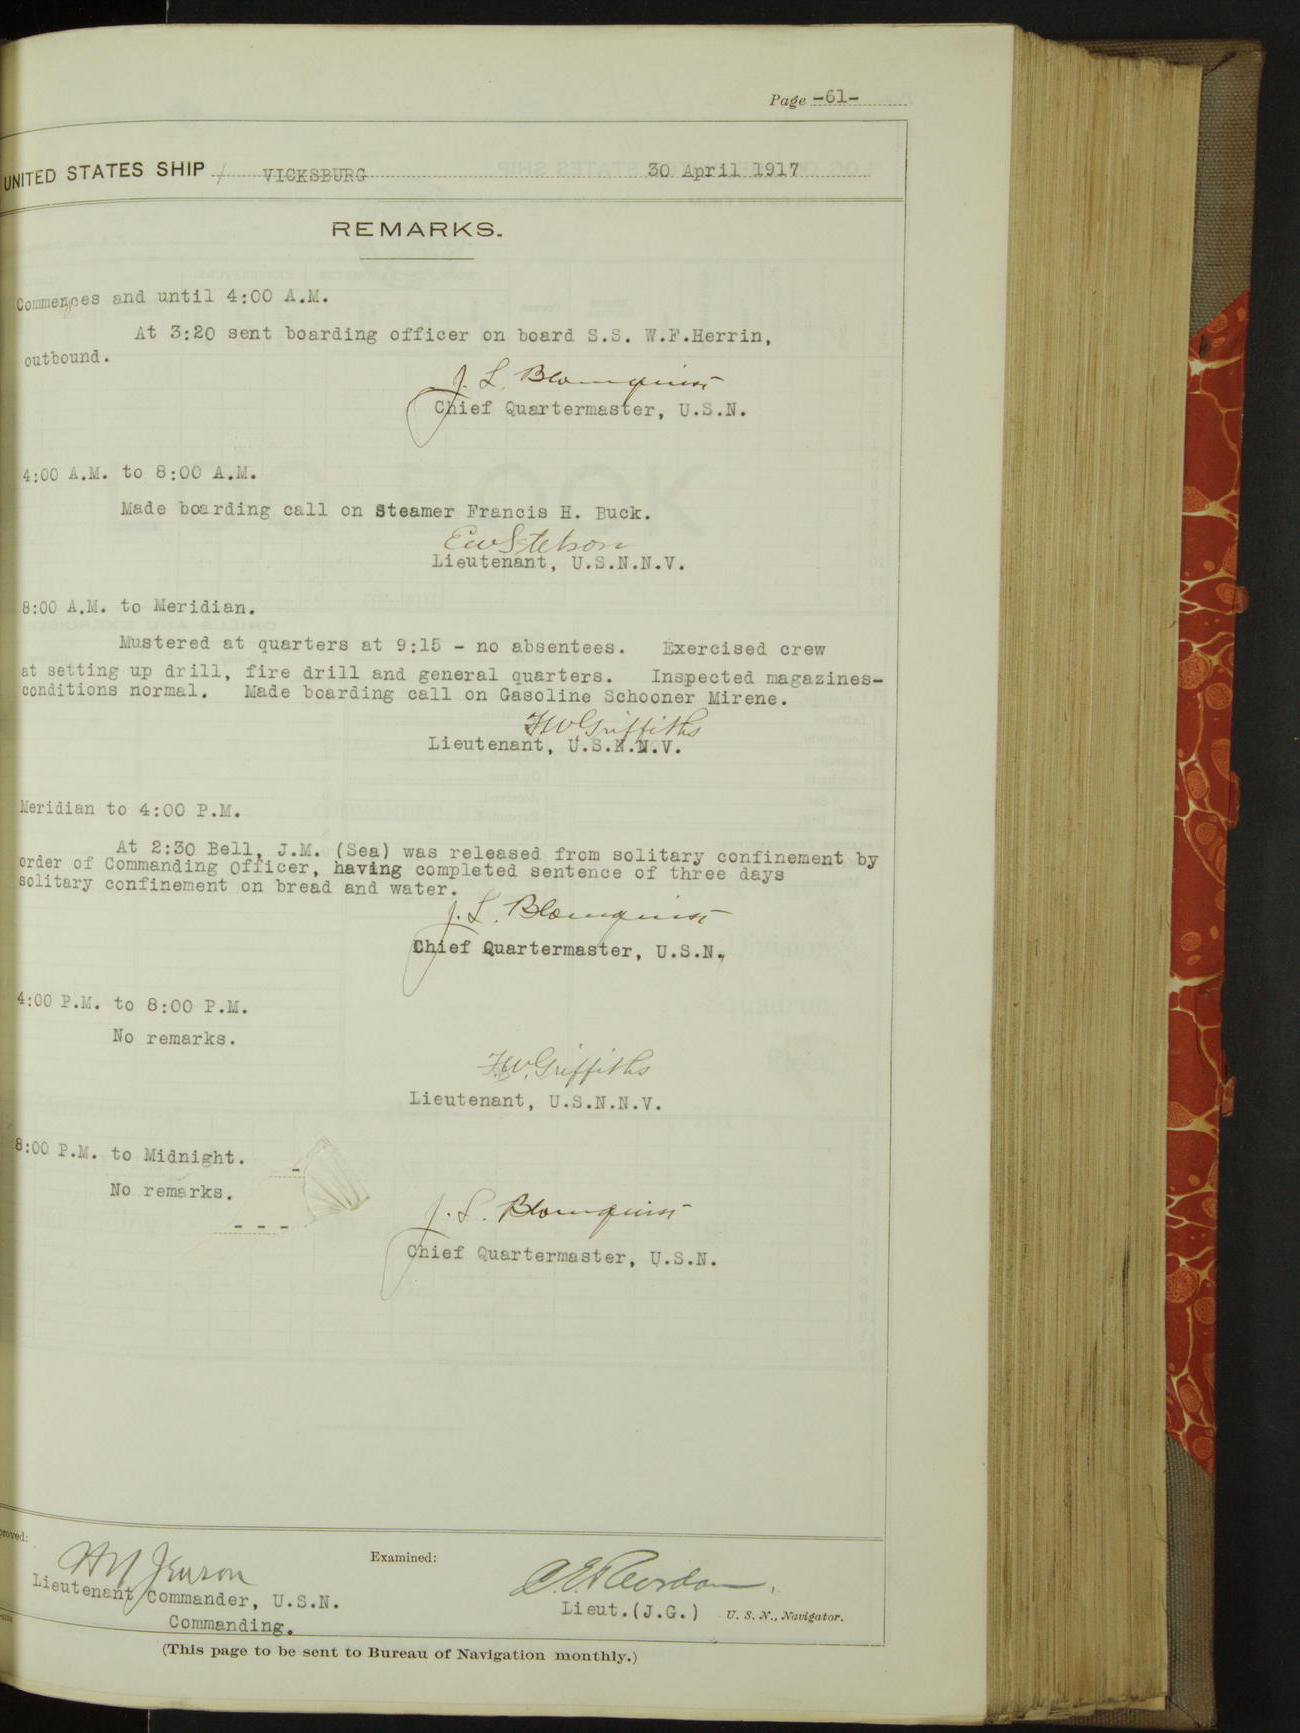 Page -61-
UNITED STATES SHIP VICKSBURG 30 April 1917
REMARKS.
Commences and until 4:00 A.M.
At 3:20 sent boarding officer on board S.S. W.F.Herrin,
outbound.
J. L. Blomquist
Chief Quartermaster, U.S.N.
4:00 A.M. to 8:00 A.M.
Made boarding call on Steamer Francis H. Buck.
EW Stetson
Lieutenant, U.S.N.N.V.
8:00 A.M. to Meridian.
Mustered at quarters at 9:15 - no absentees. Exercised crew
at setting up drill, fire drill and general quarters. Inspected magazines-
conditions normal. Made boarding call on Gasoline Schooner Mirene.
F.W. Griffiths
Lieutenant, U.S.N.N.V.
Meridian to 4:00 P.M.
At 2:30 Bell, J.M. (Sea) was released from solitary confinement by
order of Commanding Officer, having completed sentence of three days
solitary confinement on bread and water.
J. L. Blomquist
Chief Quartermaster, U.S.N.
4:00 P.M. to 8:00 P.M.
No remarks.
F.W. Griffiths
Lieutenant, U.S.N.N.V.
8:00 P.M. to Midnight. -
No remarks.
- - -
J. L. Blomquist
Chief Quartermaster, U.S.N.
proved:
Examined:
Lieutenant Commander, U.S.N.
Commanding.
Lieut.(J.G.) U. S. N., Navigator.
(This page to be sent to Bureau of Navigation monthly.)